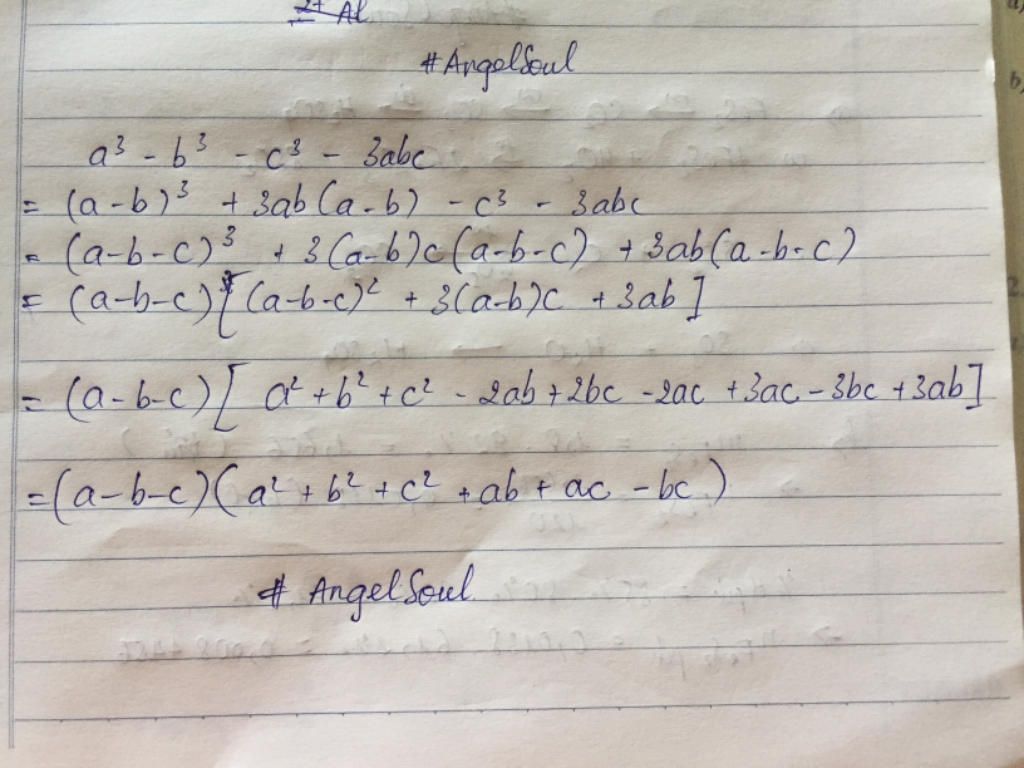 2+ Al
#AngelSoul
a³ - b³ - c³ - 3abc
= (a-b)³ + 3ab(a-b) - c³ - 3abc
= (a-b-c)³ + 3(a-b)c(a-b-c) + 3ab(a-b-c)
= (a-b-c)[(a-b-c)² + 3(a-b)c + 3ab]
= (a-b-c)[a²+b²+c² - 2ab+2bc -2ac +3ac-3bc+3ab]
=(a-b-c)(a²+b²+c² +ab+ac -bc)
# AngelSoul